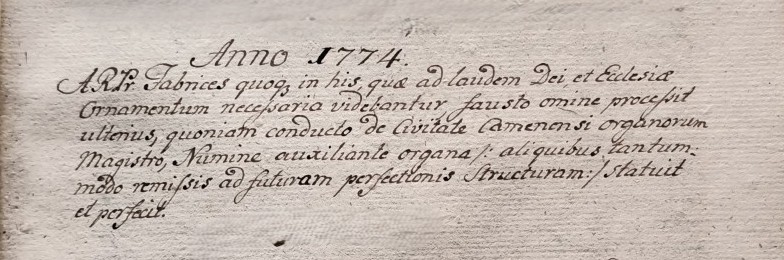 Anno 1774.
A.R.Pr. Fabrices quoq; in his, quæ ad laudem Dei, et Ecclesiæ
Ornamentum necessaria videbantur fausto omine processit
ulterius, quoniam conducto de Civitate Camenensi organorum
Magistro, Numine auxiliante organa /: aliquibus tantum:
modo remissis ad futuram perfectionis Structuram :/ statuit
et perfecit.